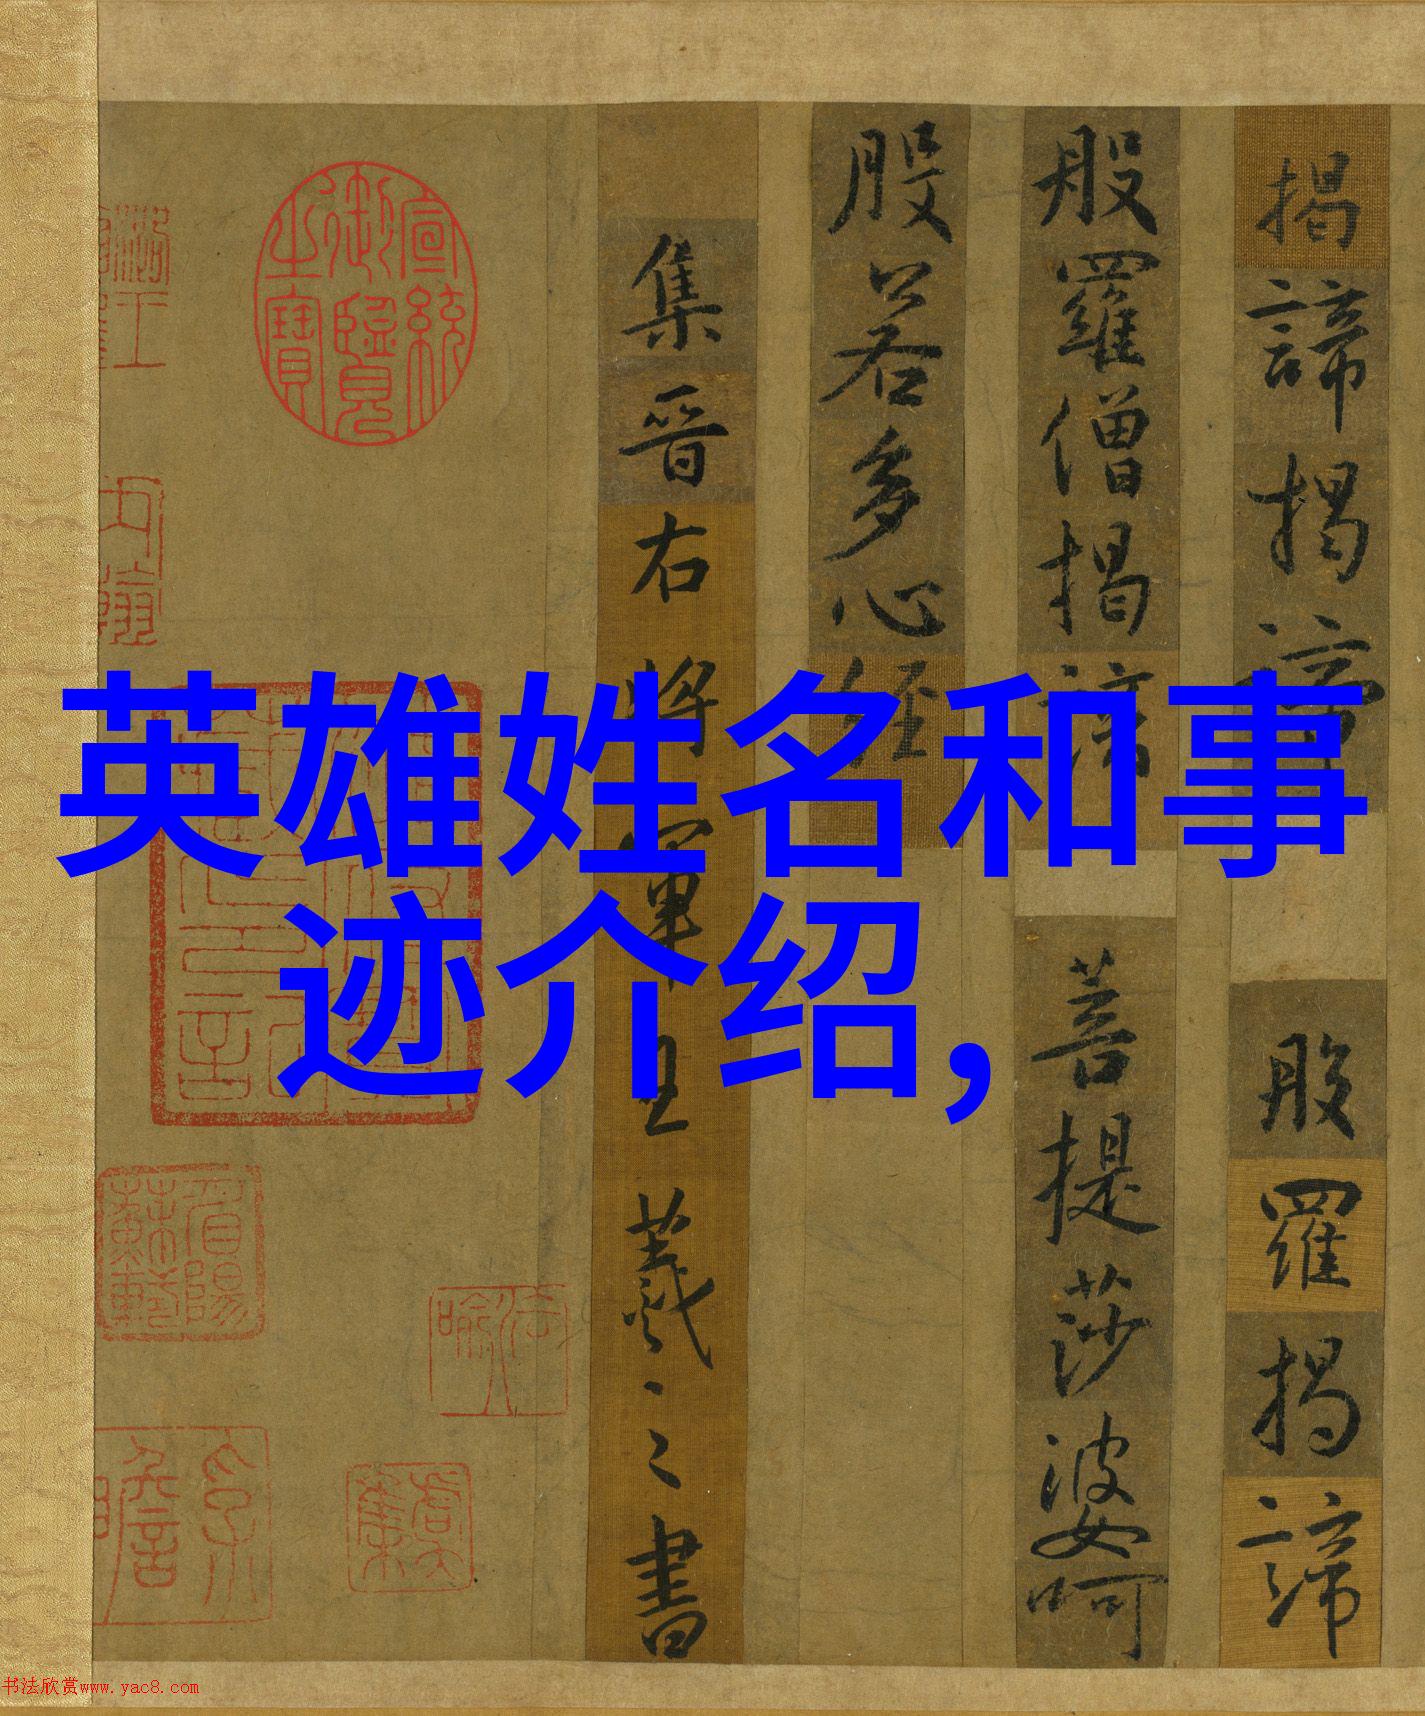 英雄姓名和事
迹介绍,
揭諦揭諦 般羅揭諦
般羅僧揭諦 菩提莎婆呵
般若多心經
集晉右將軍王羲之書
宣統御覽之寶
书法欣赏www.yac8.com